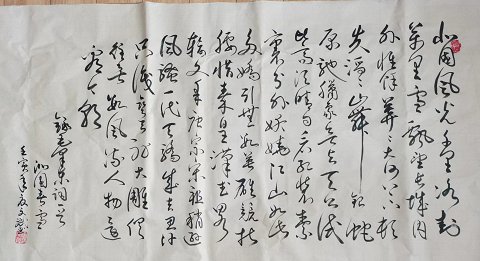 北国风光千里冰封
万里雪飘望长城内
外惟余莽莽大河上下顿
失滔滔山舞银蛇
原驰蜡象欲与天公试
比高须晴日看红装素
裹分外妖娆江山如此
多娇引无数英雄竞折
腰惜秦皇汉武略
输文采唐宗宋祖稍逊
风骚一代天骄成吉思汗
只识弯弓射大雕俱
往矣数风流人物还
看今朝
录毛泽东词一首
沁园春雪
壬寅年